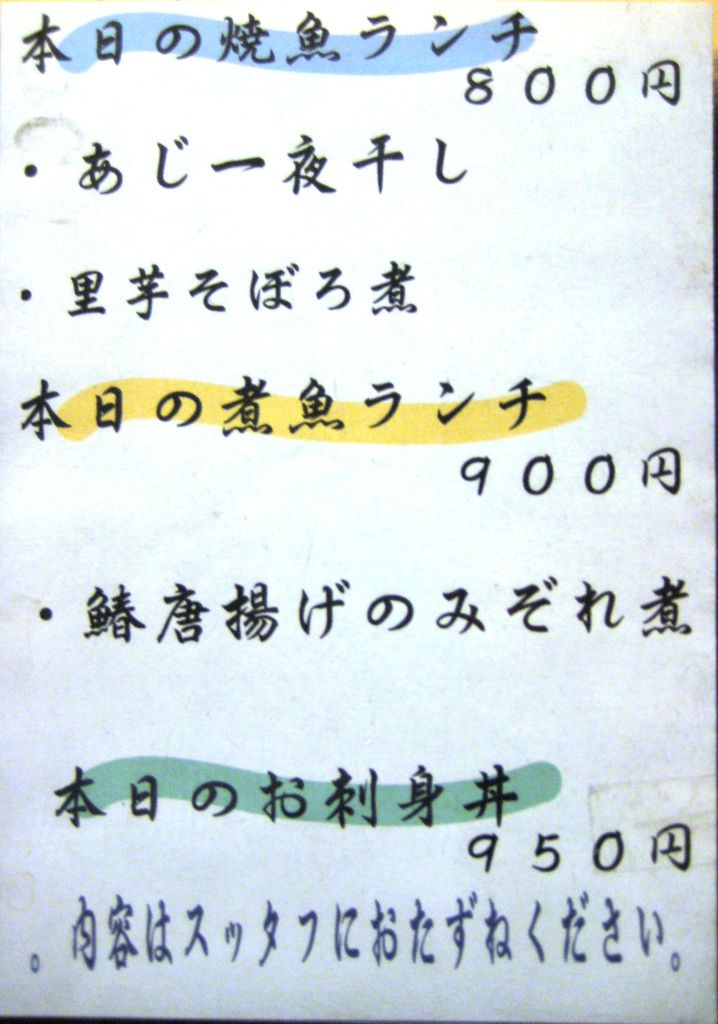 本日の焼魚ランチ
800円
・あじ一夜干し
・里芋そぼろ煮
本日の煮魚ランチ
900円
・鰆唐揚げのみぞれ煮
本日のお刺身丼
950円
。内容はスッタフにおたずねください。